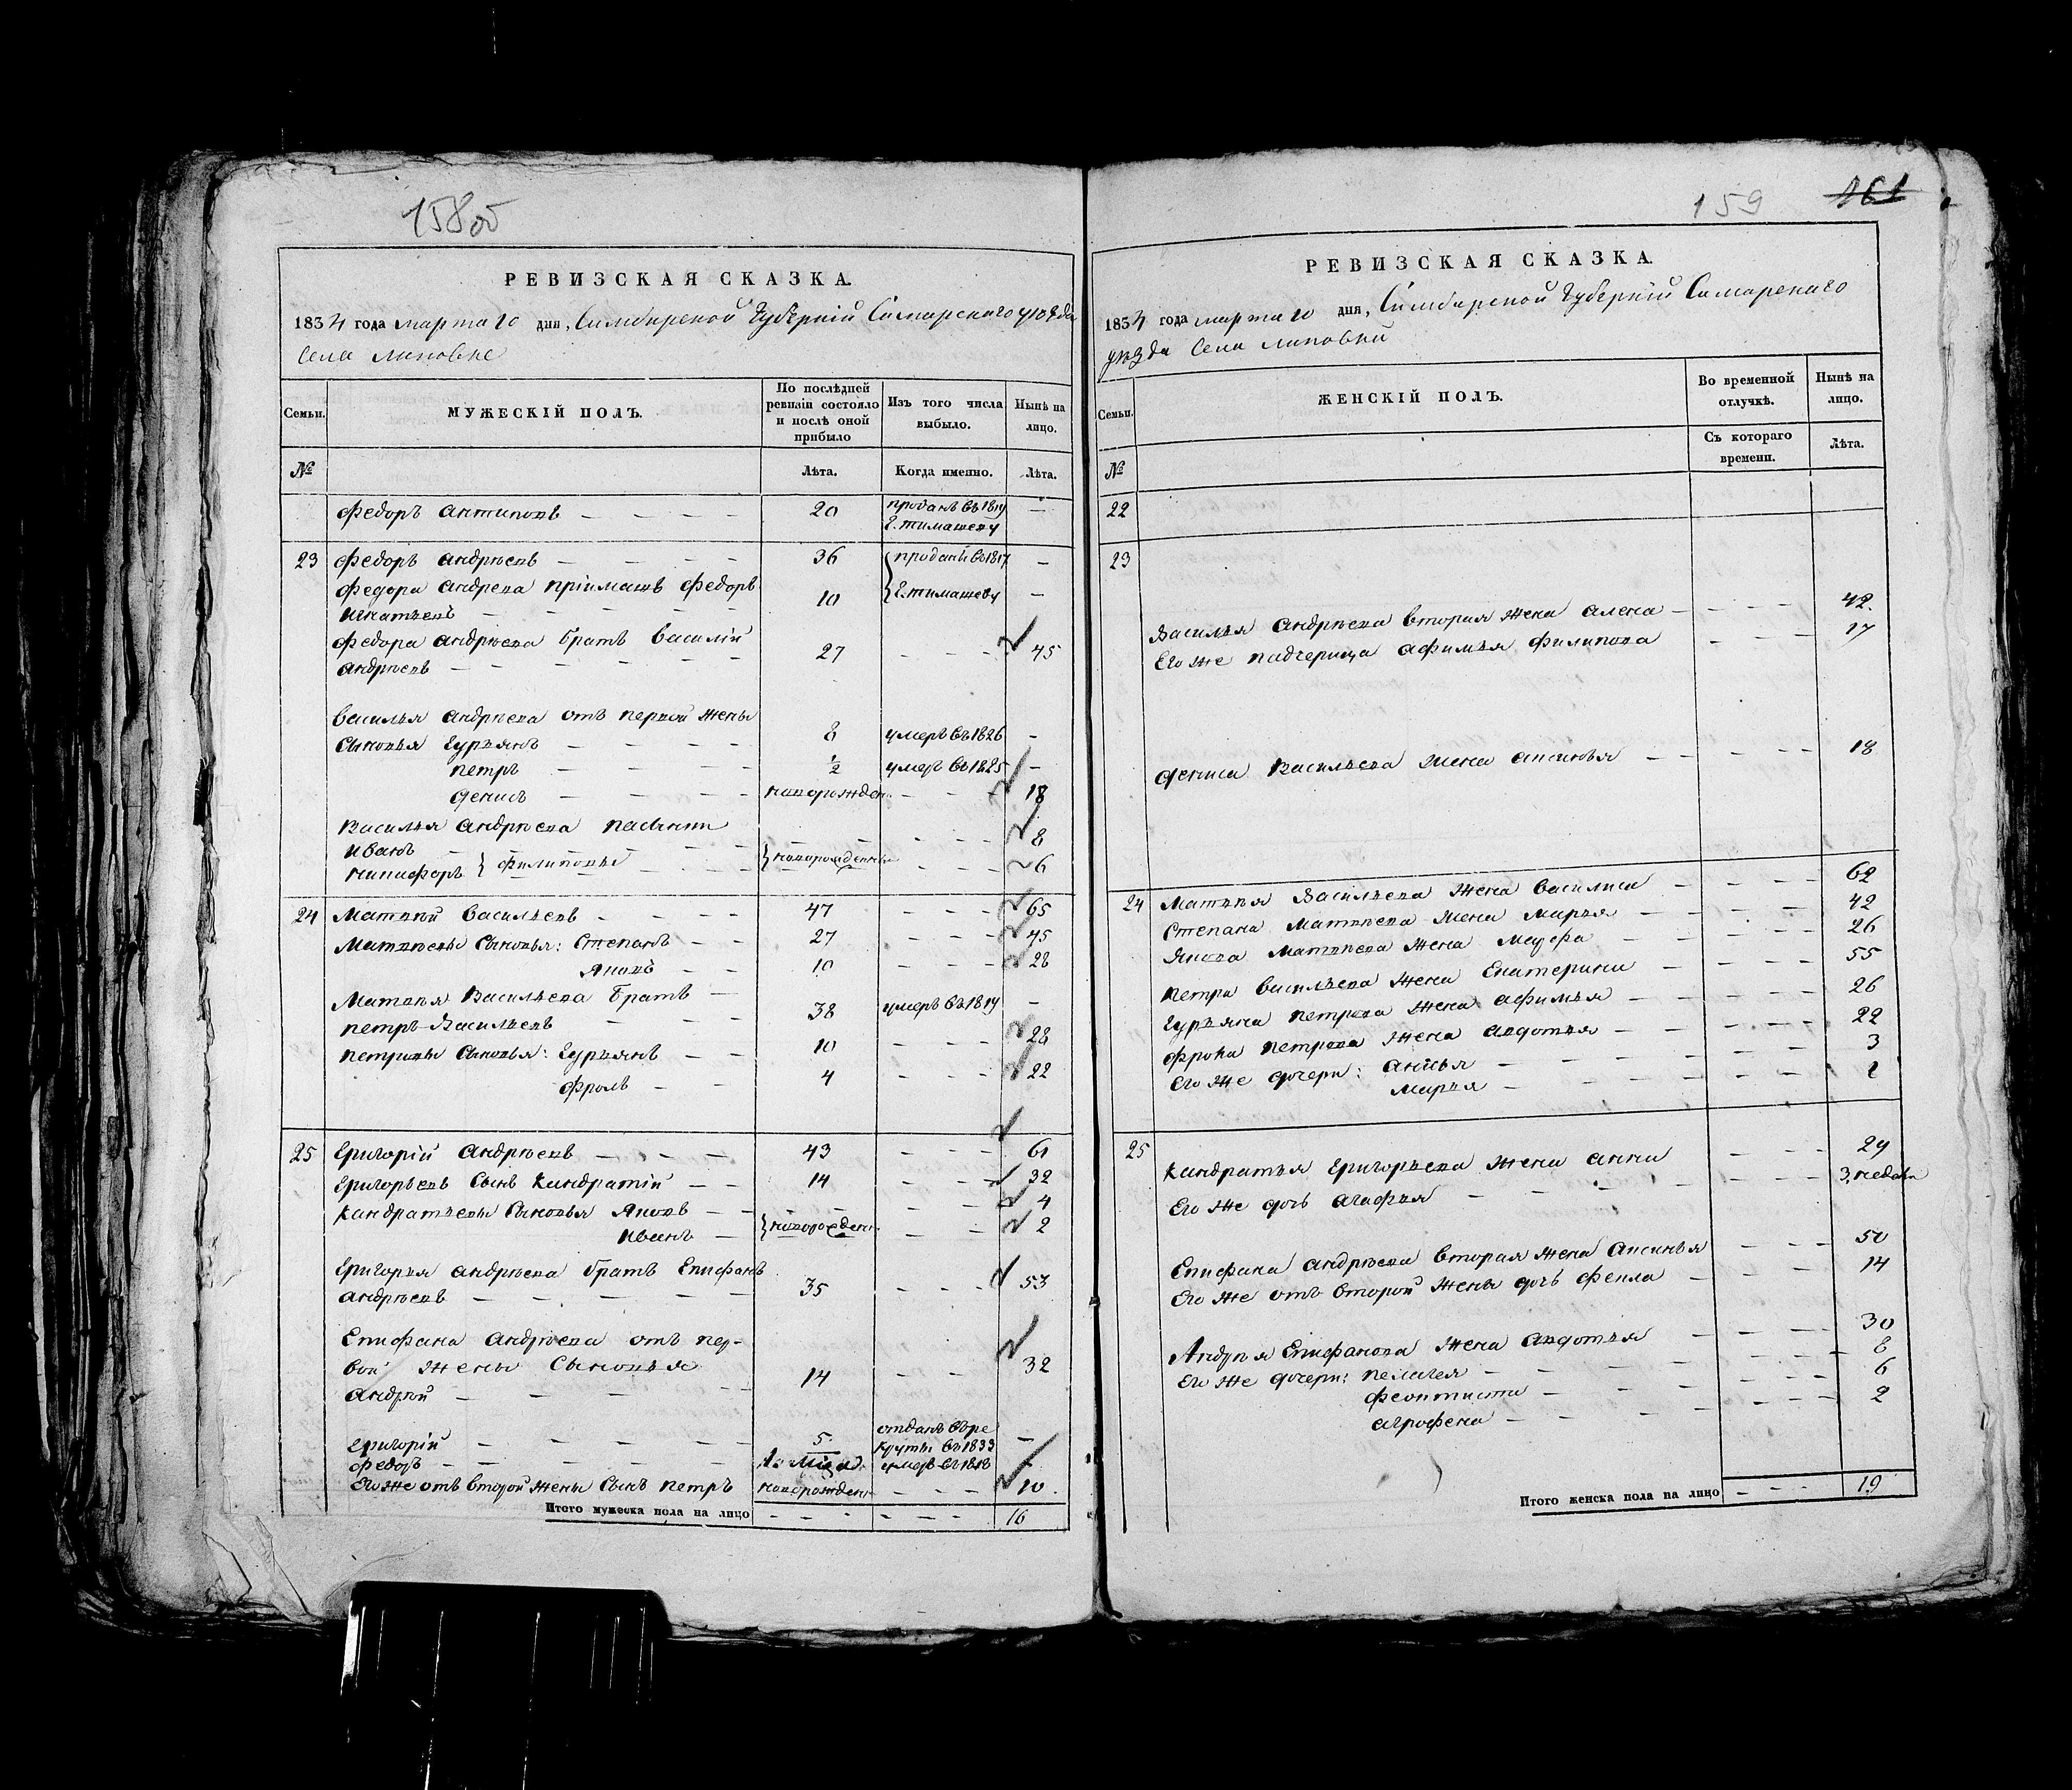 158об
РЕВИЗСКАЯ СКАЗКА.
1834 года марта 10 дня, Симбирской Губернiи Самарскаго уѣзда
Села Липовки
Семьи.
МУЖЕСКIЙ ПОЛЪ.
По послѣдней ревизiи состояло и послѣ оной прибыло
Изъ того числа выбыло.
Нынѣ на лицо.
№
Лѣта.
Когда именно.
Лѣта.
Федоръ Антиповъ — — — — 20 проданъ въ 1819 —
Г. Тимашеву
23 Федоръ Андрѣевъ — — — — 36 проданы въ 1817 —
Федора Андрева прiимашъ Федоръ 10 Г. Тимашеву —
Игнатьевъ — — — — —
Федора Андрѣева братъ Василiй 27 — — — 45
Андрѣевъ — — — — —
Василья Андрѣева отъ первой жены
Сыновья Гурьянъ — — — — 8 умеръ въ 1826 —
Петръ — — — — ½ умеръ въ 1825 —
Денисъ — — — — новорожден. — — 18
Василья Андрѣева пасынки
Иванъ — — — — 8
Никифоръ } Филиповы } новорожденны — — 6
24 Матвѣй Васильевъ — — — — 47 — — — 65
Матвѣевы Сыновья: Степанъ — — 27 — — — 45
Яковъ — — 10 — — — 28
Матвѣя Васильева братъ —
Петръ Васильевъ — — — 38 умеръ въ 1819 —
Петровы сыновья: Гурьянъ — — 10 — — — 28
Фролъ — — 4 — — — 22
25 Григорiй Андрѣевъ — — — 43 — — — 61
Григорьевъ Сынъ Кандратiй — — 14 — — — 32
Кандратьевы Сыновья Яковъ — — — — 4
Иванъ — } новорожден. — — 2
Григорья Андрѣева братъ Епифанъ 35 — — — 53
Андрѣевъ — — — — —
Епифана Андрѣева отъ пер-
вой жены Сыновья 32
Андрѣй — — — — 14 — —
Григорiй — — — — — 5 отданъ въ ре
круты въ 1833 —
Федоръ — — — — — умеръ въ 1818 —
Его же отъ второй жены Сынъ Петръ новорожден. — — — 10.
Итого мужеска пола на лицо — — — — — — 16
159 161
РЕВИЗСКАЯ СКАЗКА.
1834 года марта 10 дня, Симбирской Губернiи Самарскаго
уѣзда Села Липовки
Семьи.
ЖЕНСКIЙ ПОЛЪ.
Во временной отлучкѣ.
Нынѣ на лицо.
№
Съ котораго времени.
Лѣта.
22
23
Василья Андрѣева вторая жена Алена — — — — 42.
Его же падчерица Афимья Филипова — — — 17
Дениса Васильева жена Аксинья — — — — — 18
24 Матвѣя Васильева жена Василиса — — — — 62
Степана Матвѣева жена Марья — — — — 42
Якова Матвѣева жена — — — — 26
Петра Васильева жена Екатерина — — — — 55
Гурьяна Петрова жена Афимья — — — — 26
Фрола Петрова жена Авдотья — — — — 22
Его же дочери: — — — — 3
Марья — — — —
25
Кандратья Григорьева жена Анна — — — 29
Его же дочь Агафья — — — — 3, недели
Епифана Андрѣева вторая жена Аксинья — — — 50
Его же отъ второй жены дочь Фекла — — — 14
Андрѣя Епифанова жена Авдотья — — — — 30
Его же дочери: Пелагея — — — — 8
Феоктиста — — — — 6
Агрофена — — — — 2
Итого женска пола на лицо — — — 19